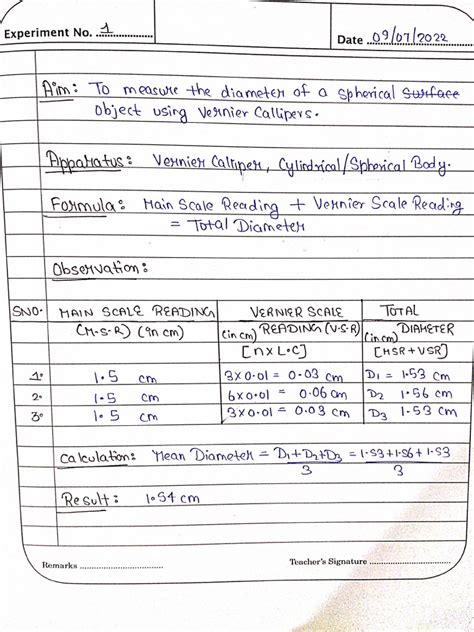 Experiment No. 1
Date 09/07/2022
Aim: To measure the diameter of a spherical surface
object using Vernier Callipers.
Apparatus: Vernier Calliper, Cylindrical/Spherical Body.
Formula: Main Scale Reading + Vernier Scale Reading
= Total Diameter
Observation:
SNO. MAIN SCALE READING VERNIER SCALE TOTAL
(M.S.R) (in cm) (in cm) READING (V.S.R) (in cm) DIAMETER
[n x L.C] [MSR+VSR]
1. 1.5 cm 3x0.01 = 0.03 cm D1 = 1.53 cm
2. 1.5 cm 6x0.01 = 0.06 cm D2 1.56 cm
3. 1.5 cm 3x0.01 = 0.03 cm D3 1.53 cm
Calculation: Mean Diameter = D1+D2+D3 = 1.53+1.56+1.53
3 3
Result: 1.54 cm
Remarks
Teacher's Signature